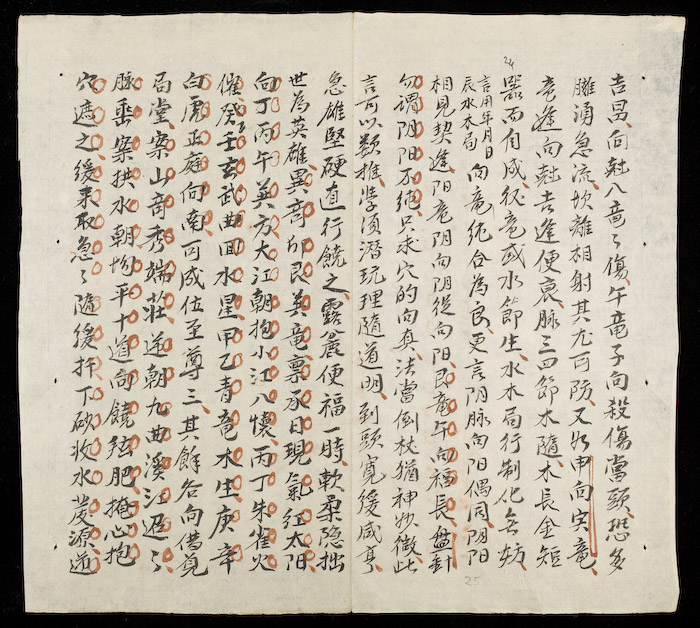 24
吉昌向尅八竜〻傷午竜子向殺傷當頭恐多
臃涌急流坎離相射其尤可防又如申向寅竜
竜逢向尅吉逢便衰脉三四節木隨木長金短
器而自成征竜或水節生水木局行制化無妨
言用年月日
辰水木局
向竜純合為良更言阴脉向阳偶同阴阳
相見契逢阳竜阴向阴從向阳艮竜午向福長盤針
勿谓阴阳不純只求穴的向真法當倒杖猶神妙微此
言可以類推學須潜玩理隨道明到頭寛緩咸亨
25
急雄堅硬直行饒之露麄便福一時軟柔隐拙
世為英雄異奇卯艮美竜禀承日現氣紅太阳
向丁丙午巽方大江朝抱小江入懷丙丁朱雀火
催癸壬玄武曲回水星甲乙青竜木生庚辛
白虎正庭向南可成位至尊三其餘各向借覓
局堂案山奇秀端荘逆朝九曲溪江迢〻
脉垂案挟水朝均平十道向饒弦肥掩心抱
穴遮之緩来取急〻隨緩扦下砂收水發源逆